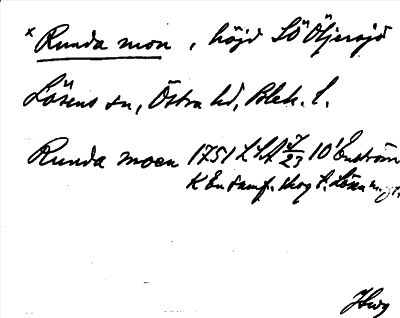 x Runda mon, höjd SÖ Öljersjö
Lösens sn, Östra hd, Blek. l.
Runda moen 1751 LSA J/23 10¹ Enström
K Ensamf. skog t. Lösen